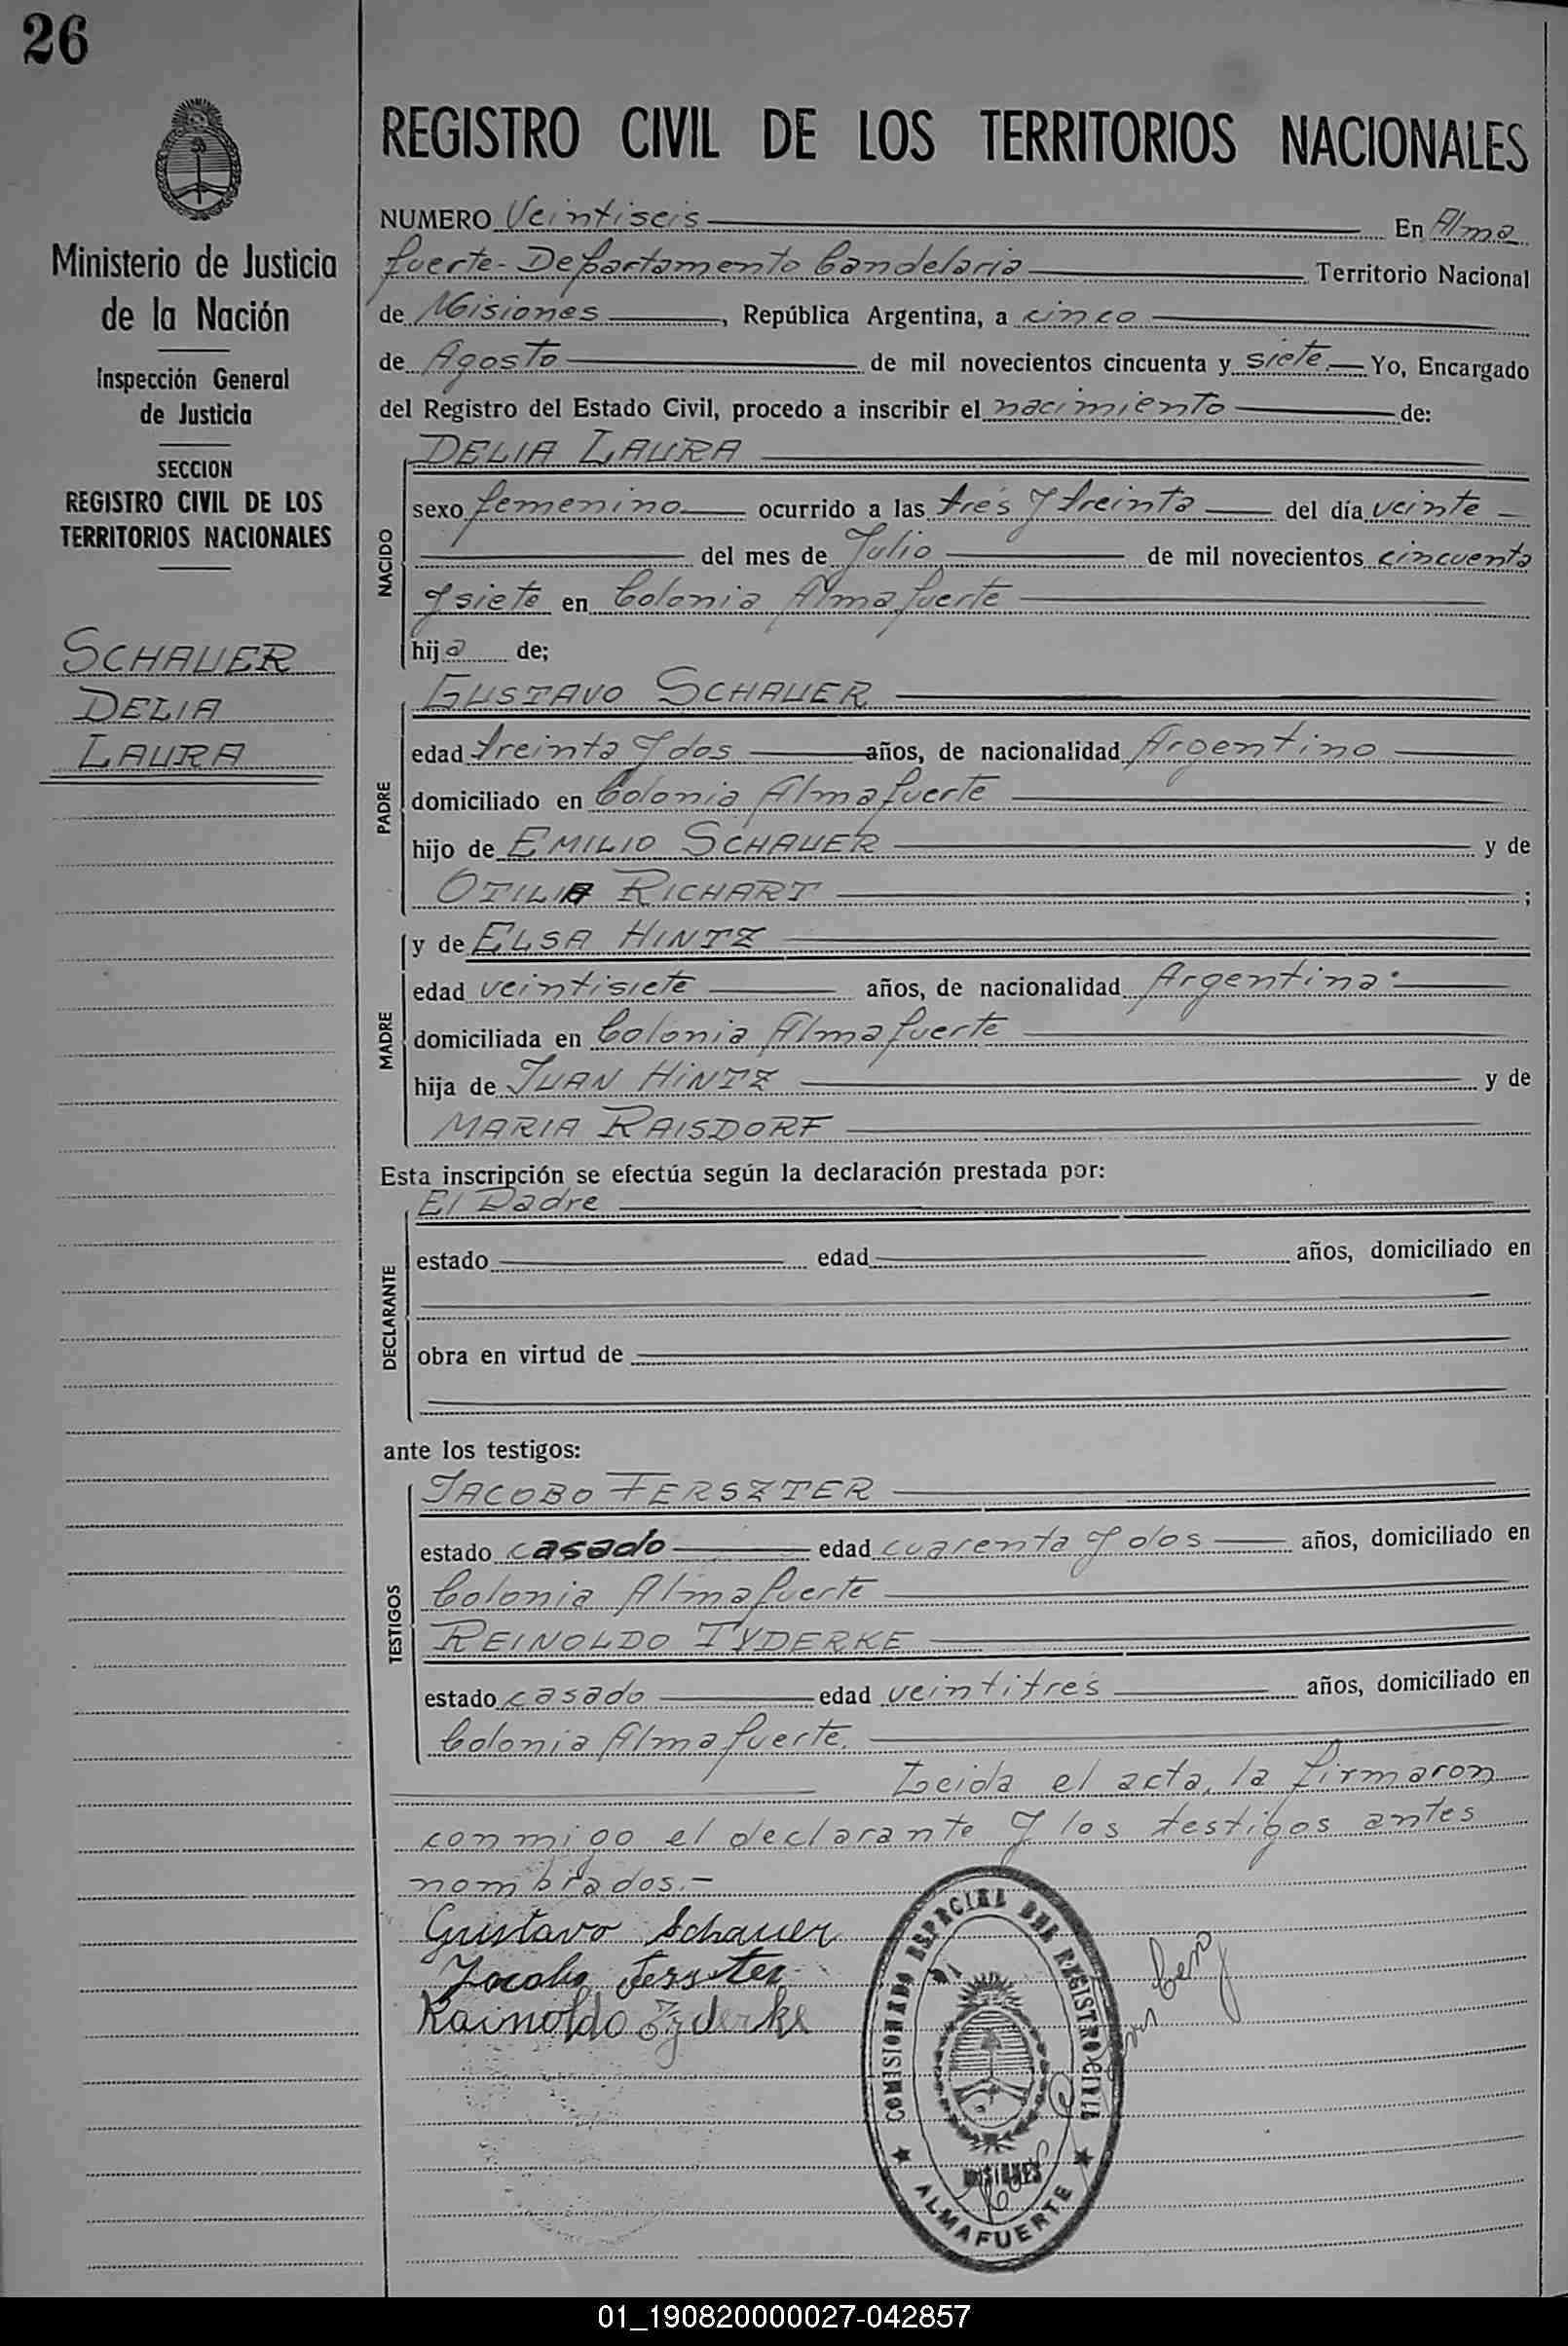 26
Ministerio de Justicia
de la Nación
Inspección General
de Justicia
SECCION
REGISTRO CIVIL DE LOS
TERRITORIOS NACIONALES
SCHAUER
DELIA
LAURA
REGISTRO CIVIL DE LOS TERRITORIOS NACIONALES
NUMERO Veintiseis En Alma
fuerte - Departamento Candelaria Territorio Nacional
de Misiones, República Argentina, a cinco
de Agosto de mil novecientos cincuenta y siete.— Yo, Encargado
del Registro del Estado Civil, procedo a inscribir el nacimiento de:
NACIDO
DELIA LAURA
sexo femenino ocurrido a las trés y treinta del día veinte
del mes de Julio de mil novecientos cincuenta
y siete en Colonia Almafuerte
hija de;
PADRE
GUSTAVO SCHAUER
edad treinta y dos años, de nacionalidad Argentino
domiciliado en Colonia Almafuerte
hijo de EMILIO SCHAUER y de
OTILIA RICHART ;
MADRE
y de ELSA HINTZ
edad veintisiete años, de nacionalidad Argentina
domiciliada en Colonia Almafuerte
hija de JUAN HINTZ y de
MARIA RAISDORF
Esta inscripción se efectúa según la declaración prestada por:
DECLARANTE
El Padre
estado edad años, domiciliado en
obra en virtud de
ante los testigos:
TESTIGOS
JACOBO FERSZTER
estado casado edad cuarenta y dos años, domiciliado en
Colonia Almafuerte
REINOLDO TYDERKE
estado casado edad veintitrés años, domiciliado en
Colonia Almafuerte.
Leida el acta, la firmaron
conmigo el declarante y los testigos antes
nombrados.-
Gustavo Schauer
Jacobo Ferszter
Rainoldo
COMISIONADO ESPECIAL DEL REGISTRO CIVIL
MISIONES
ALMAFUERTE
01_190820000027-042857